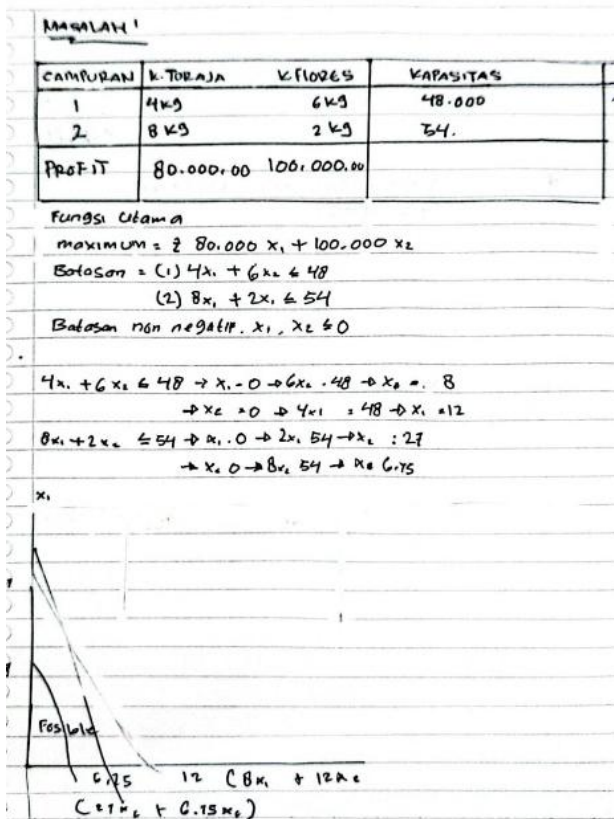 MASALAH 1
CAMPURAN K. TORAJA K FLORES KAPASITAS
1 4 kg 6 kg 48.000
2 8 kg 2 kg 54.
PROFIT 80.000,00 100.000,00
Fungsi Utama
maximum = Z 80.000 x₁ + 100.000 x₂
Batasan = (1) 4x₁ + 6x₂ ≤ 48
(2) 8x₁ + 2x₁ ≤ 54
Batasan non negatif. x₁, x₂ ≤ 0
4x₁ + 6x₂ ≤ 48 → x₁ = 0 → 6x₂ = 48 → x₂ = 8
→ x₂ = 0 → 4x1 = 48 → x₁ = 12
8x₁ + 2x₂ ≤ 54 → x₁ = 0 → 2x₁ 54 → x₂ : 27
→ x₂ 0 → 8x₂ 54 → x₂ 6.75
x₁
Fosible
6,25 12 (8x₁ + 12x₂
(27x₂ + 6.75x₂)